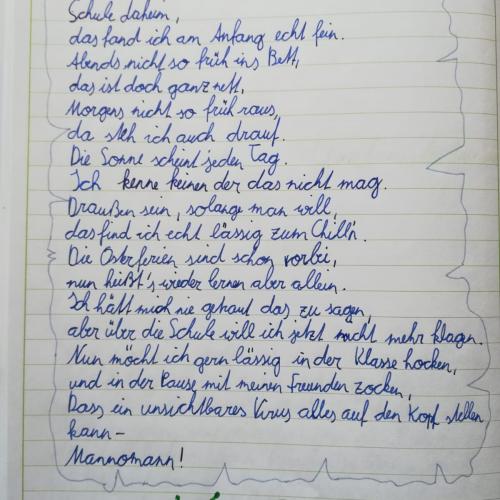 Schule daheim,
das fand ich am Anfang echt fein.
Abends nicht so früh ins Bett,
das ist doch ganz nett,
Morgens nicht so früh raus,
da steh ich auch drauf.
Die Sonne scheint jeden Tag.
Ich kenne keinen der das nicht mag.
Draußen sein, solange man will,
das find ich echt lässig zum Chill'n.
Die Osterferien sind schon vorbei,
nun heißt's wieder lernen aber allein.
Ich hätt mich nie getraut das zu sagen,
aber über die Schule will ich jetzt nicht mehr klagen.
Nun möcht ich gern lässig in der Klasse hocken,
und in der Pause mit meinen Freunden zocken,
Dass ein unsichtbares Virus alles auf den Kopf stellen
kann-
Mannomann!